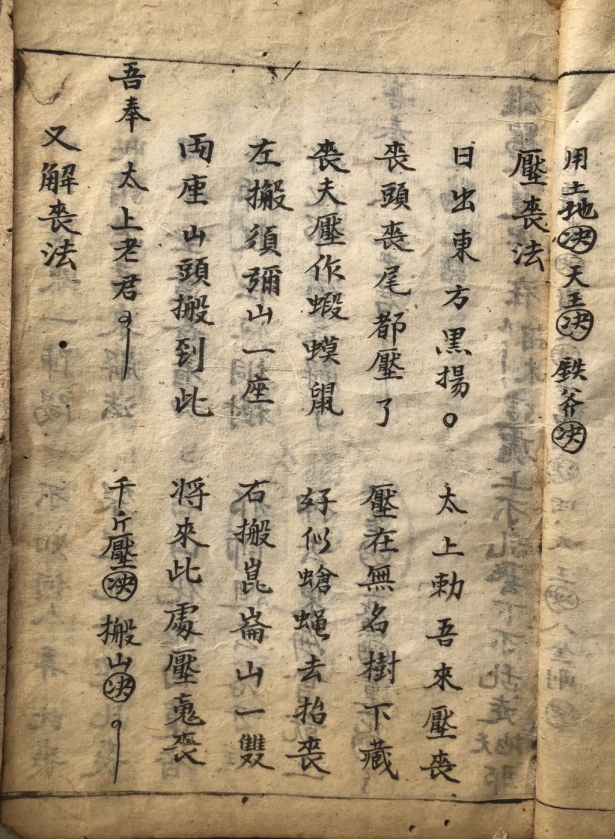 用土地决天王决鉄爷决
壓喪法
日出東方黒揚。太上勅吾來壓喪
喪頭喪尾都壓了壓在無名樹下藏
喪夫壓作蝦蟆鼠好似蝽蠅去抬喪
左搬須彌山一座右搬崑崙山一雙
両座山頭搬到此将來此處壓鬼喪
吾奉太上老君千斤壓决搬山决
又解喪法